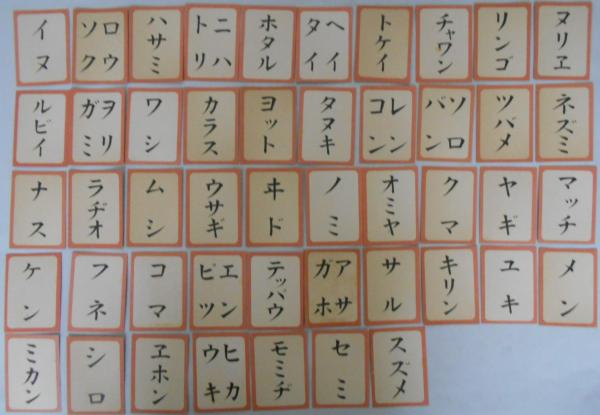 イヌ
ロウ
ソク
ハサミ
ニハ
トリ
ホタル
ヘイ
タイ
トケイ
チャワン
リンゴ
ヌリヱ
ルビイ
ヲリ
ガミ
ワシ
カラス
ヨット
タヌキ
レン
コン
ソロ
バン
ツバメ
ネズミ
ナス
ラヂオ
ムシ
ウサギ
ヰド
ノミ
オミヤ
クマ
ヤギ
マッチ
ケン
フネ
コマ
エン
ピツ
テッパウ
アサ
ガホ
サル
キリン
ユキ
メン
ミカン
シロ
ヱホン
ヒカ
ウキ
モミヂ
セミ
スズメ